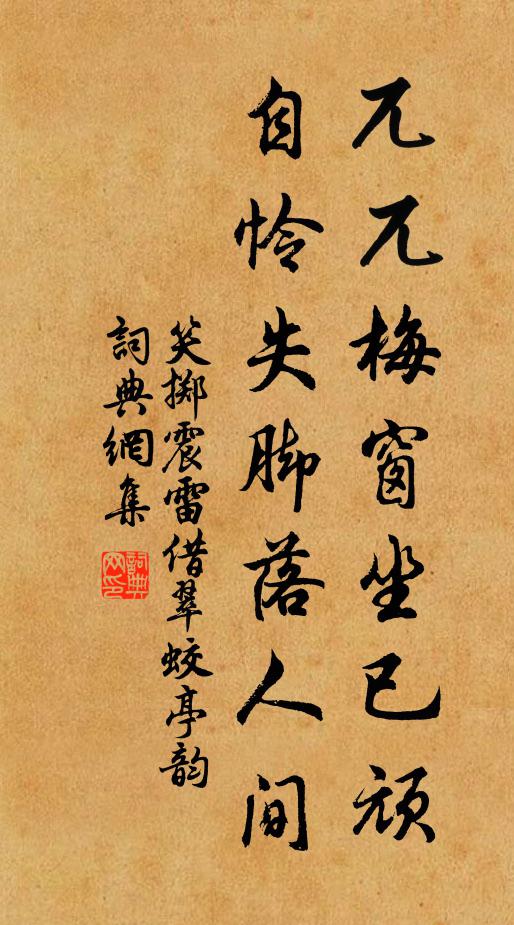 兀兀梅窗坐已顽
自怜失脚落人间
笑掷震雷借翠蛟亭韵
詞典網集
詞典网印